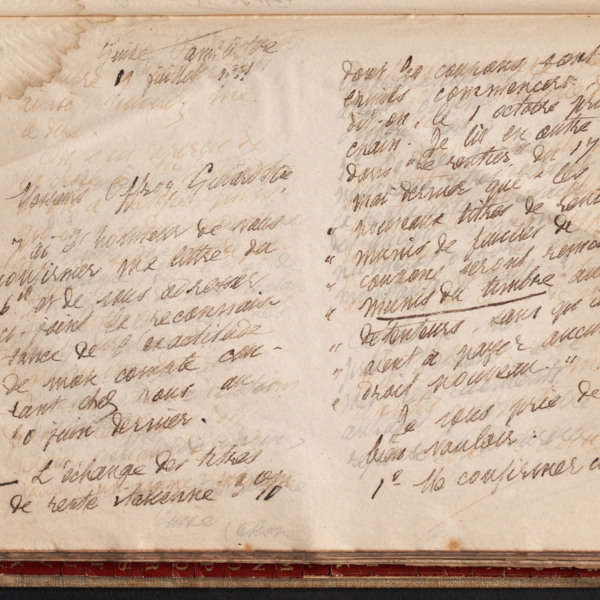 Guise Familistère
11 juillet
Monsieur Offroy Guiard & Cie
J'ai l'honneur de vous
confirmer ma lettre du
6 et de vous adresser
ci-joint la reconnais
sance de l'exactitude
de mon compte cou-
rant chez vous au
30 juin dernier.
— L'échange des titres
de rente italienne 3 0/0
dont les coupons sont
épuisés commencera
dit-on, le 1 octobre pro
chain. Je lis en outre
dans "Le rentier" du 17
mai dernier que "les
" nouveaux titres de rente
" munis de feuilles de
" coupons seront remis
" munis du timbre aux
" détenteurs sans que ces
" aient à payer aucun
" droit nouveau."
Je vous prie de
bien vouloir :
1° Me confirmer